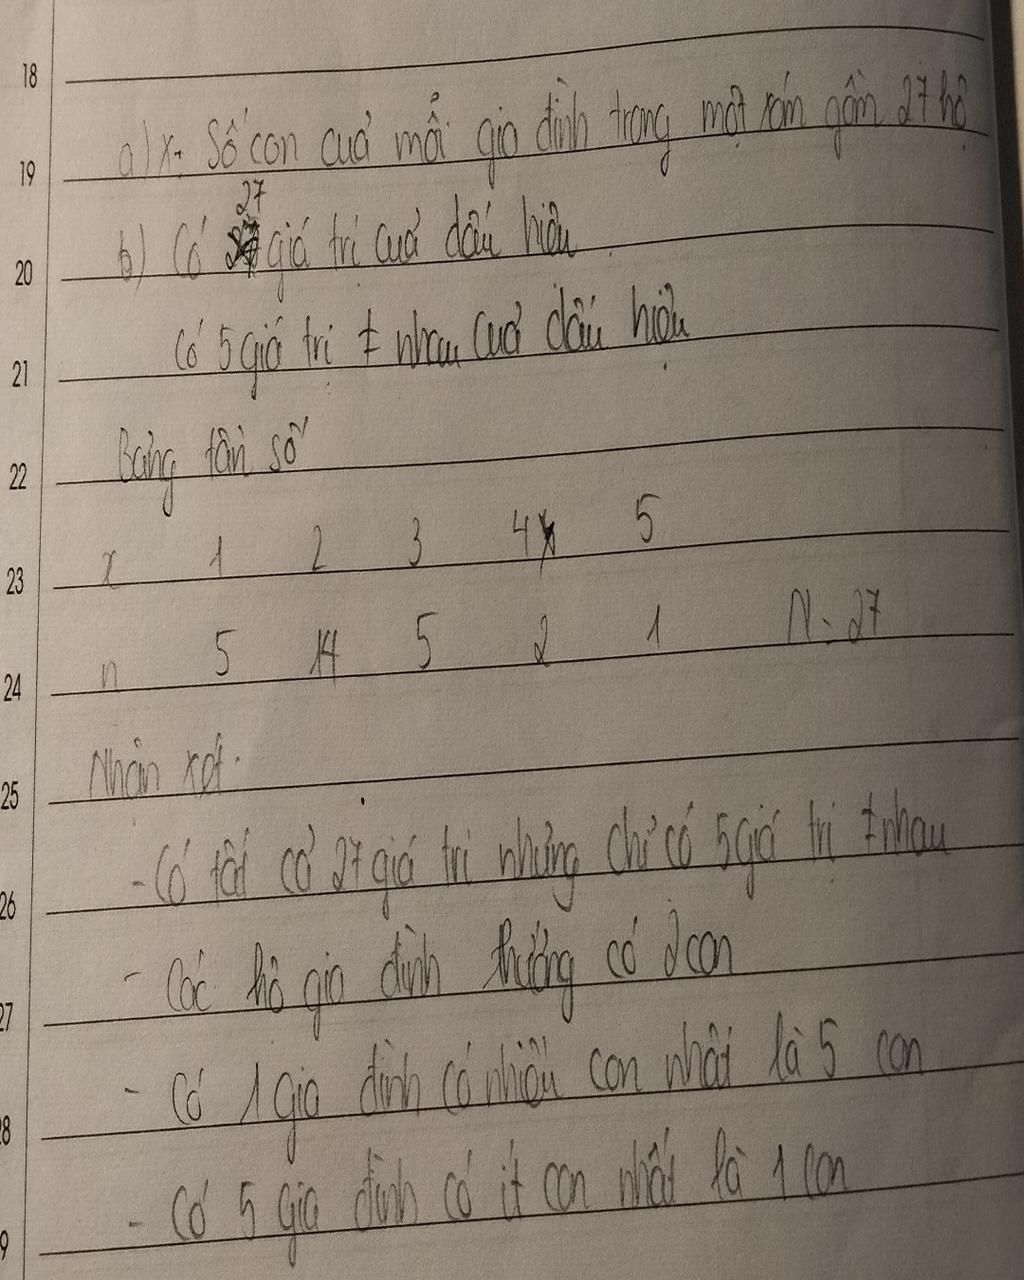 18
a) X: Số con cuả mỗi gia đình trong một xóm gồm 27 hộ
19
27
b) Có giá trị cuả dấu hiệu
20
Có 5 giá trị ≠ nhau cuả dấu hiệu
21
Bảng tần số
22
x 1 2 3 4 5
23
n 5 14 5 2 1 N = 27
24
Nhận xét:
25
- Có tất cả 27 giá trị nhưng chỉ có 5 giá trị ≠ nhau
26
- Các hộ gia đình thường có 2 con
27
- Có 1 gia đình có nhiều con nhất là 5 con
28
- Có 5 gia đình có ít con nhất là 1 con
9